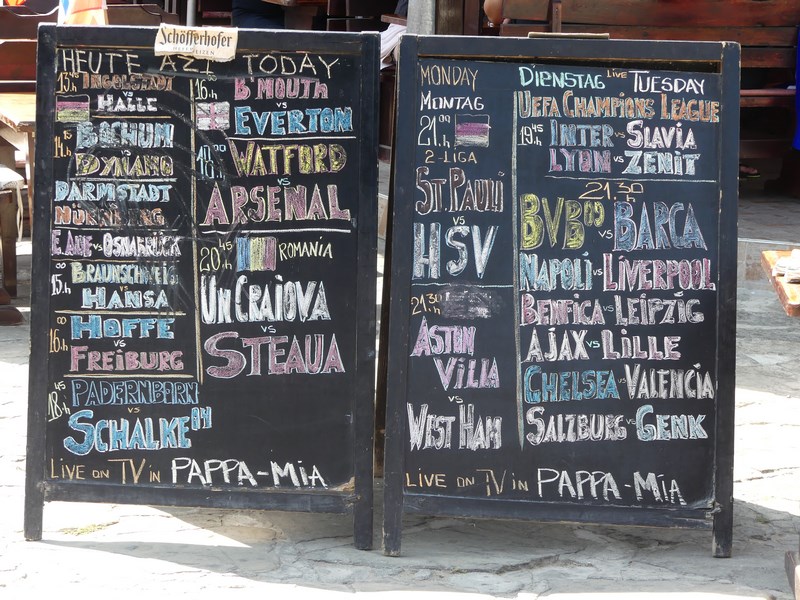 Schöfferhofer
HEUTE AZI TODAY
13 45 INGOLSTADT
VS
h HALLE
14 15 h BOCHUM
VS
DYNAMO
DARMSTADT
VS
NÜRNBERG
E. AUE VS OSNABRÜCK
15 00 h. BRAUNSCHWEIG
VS
HANSA
16 00 h HOFFE
VS
FREIBURG
18 45 h PADERNBORN
VS
SCHALKE 04
LIVE ON TV IN PAPPA-MIA
16 00 h. B'MOUTH
VS
EVERTON
18 h. WATFORD
VS
ARSENAL
20 45 h ROMANIA
UN CRAIOVA
VS
STEAUA
MONDAY
MONTAG
21 00 h
2-LIGA
ST. PAULI
VS
HSV
21 30 h
ASTON
VILLA
VS
WEST HAM
DIENSTAG LIVE TUESDAY
UEFA CHAMPIONS LEAGUE
19 45 h INTER VS SLAVIA
LYON VS ZENIT
21 30 h
BVB 09 VS BARCA
NAPOLI VS LIVERPOOL
BENFICA VS LEIPZIG
AJAX VS LILLE
CHELSEA VS VALENCIA
SALZBURG VS GENK
LIVE ON TV IN PAPPA-MIA